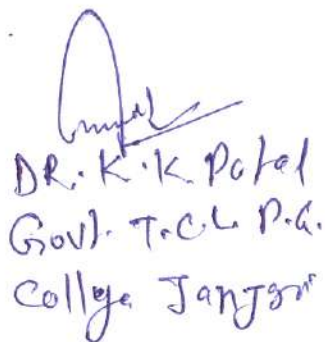 DR. K. K. Patel
Govt. T.C.L. P.G.
Collge Janjgir